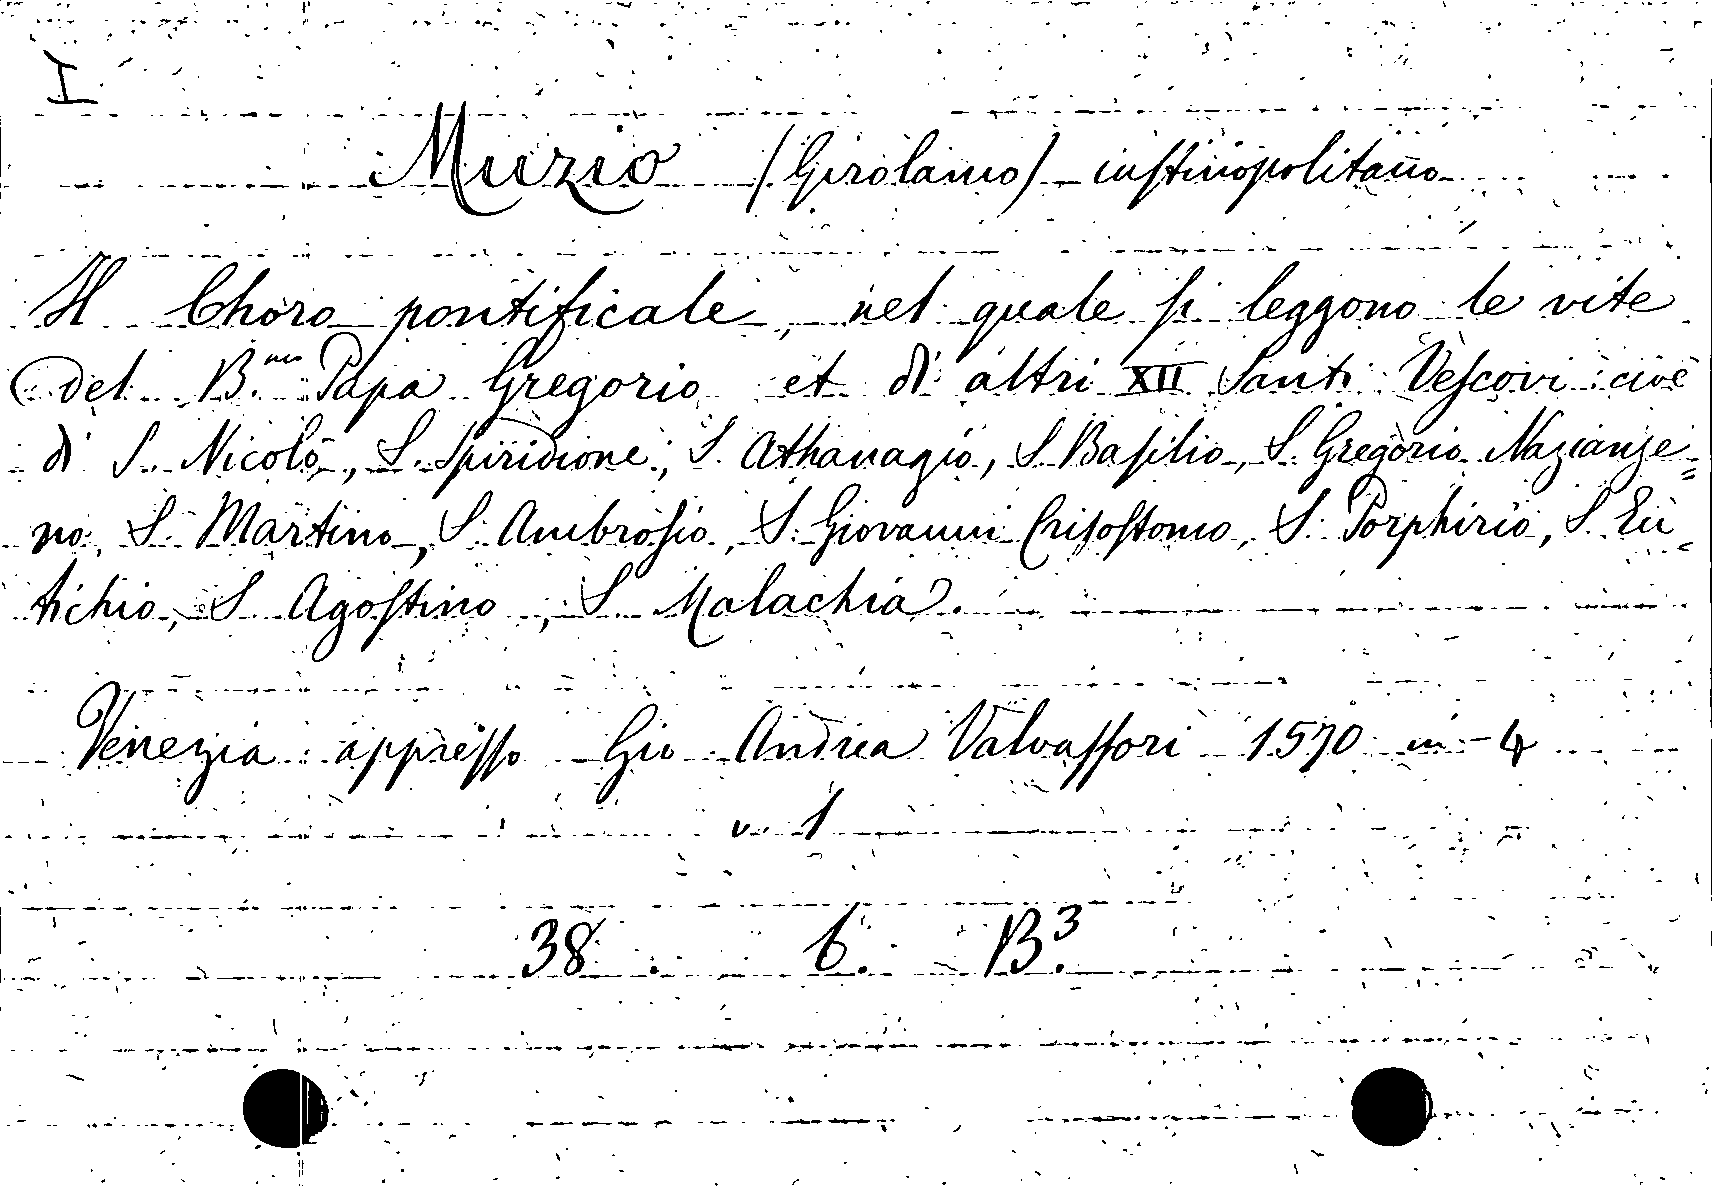 I
Muzio (Girolamo) iustinopolitano
Il Choro pontificale, nel quale si leggono le vite
del B.mo Papa Gregorio et di altri XII Santi Vescovi: cioè
di S. Nicolò, S. Spiridione, S. Athanagio, S. Basilio, S. Gregorio Nazianze=
no, S. Martino, S. Ambrosio, S. Giovanni Crisostomo, S. Porphirio, S. Eu=
tichio, S. Agostino, S. Malachia.
Venezia appresso Gio Andrea Valvassori 1570 in-4
v. 1
38. 6. B.3